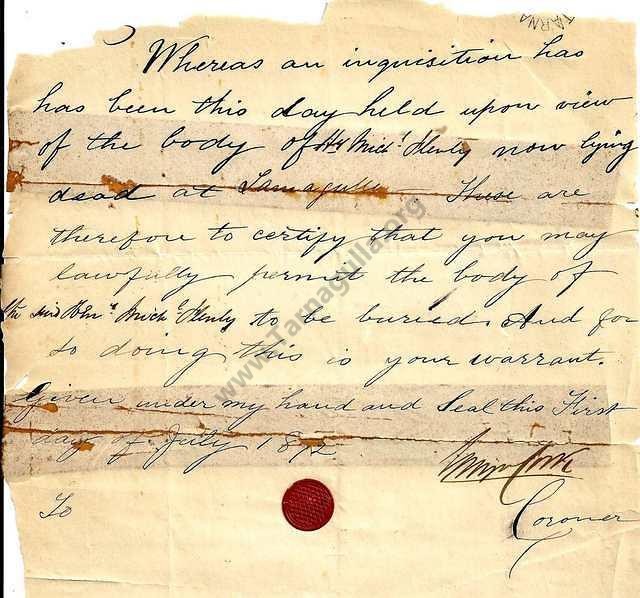 TARNA
Whereas an inquisition has
has been this day held upon view
of the body of Hy Mich! Henly now lying
dead at Tarnagulla These are
therefore to certify that you may
lawfully permit the body of
the said Mich Henly to be buried And for
so doing this is your warrant.
Given under my hand and Seal this First
day of July 1872
Coroner
To
www.Tarnagulla.org